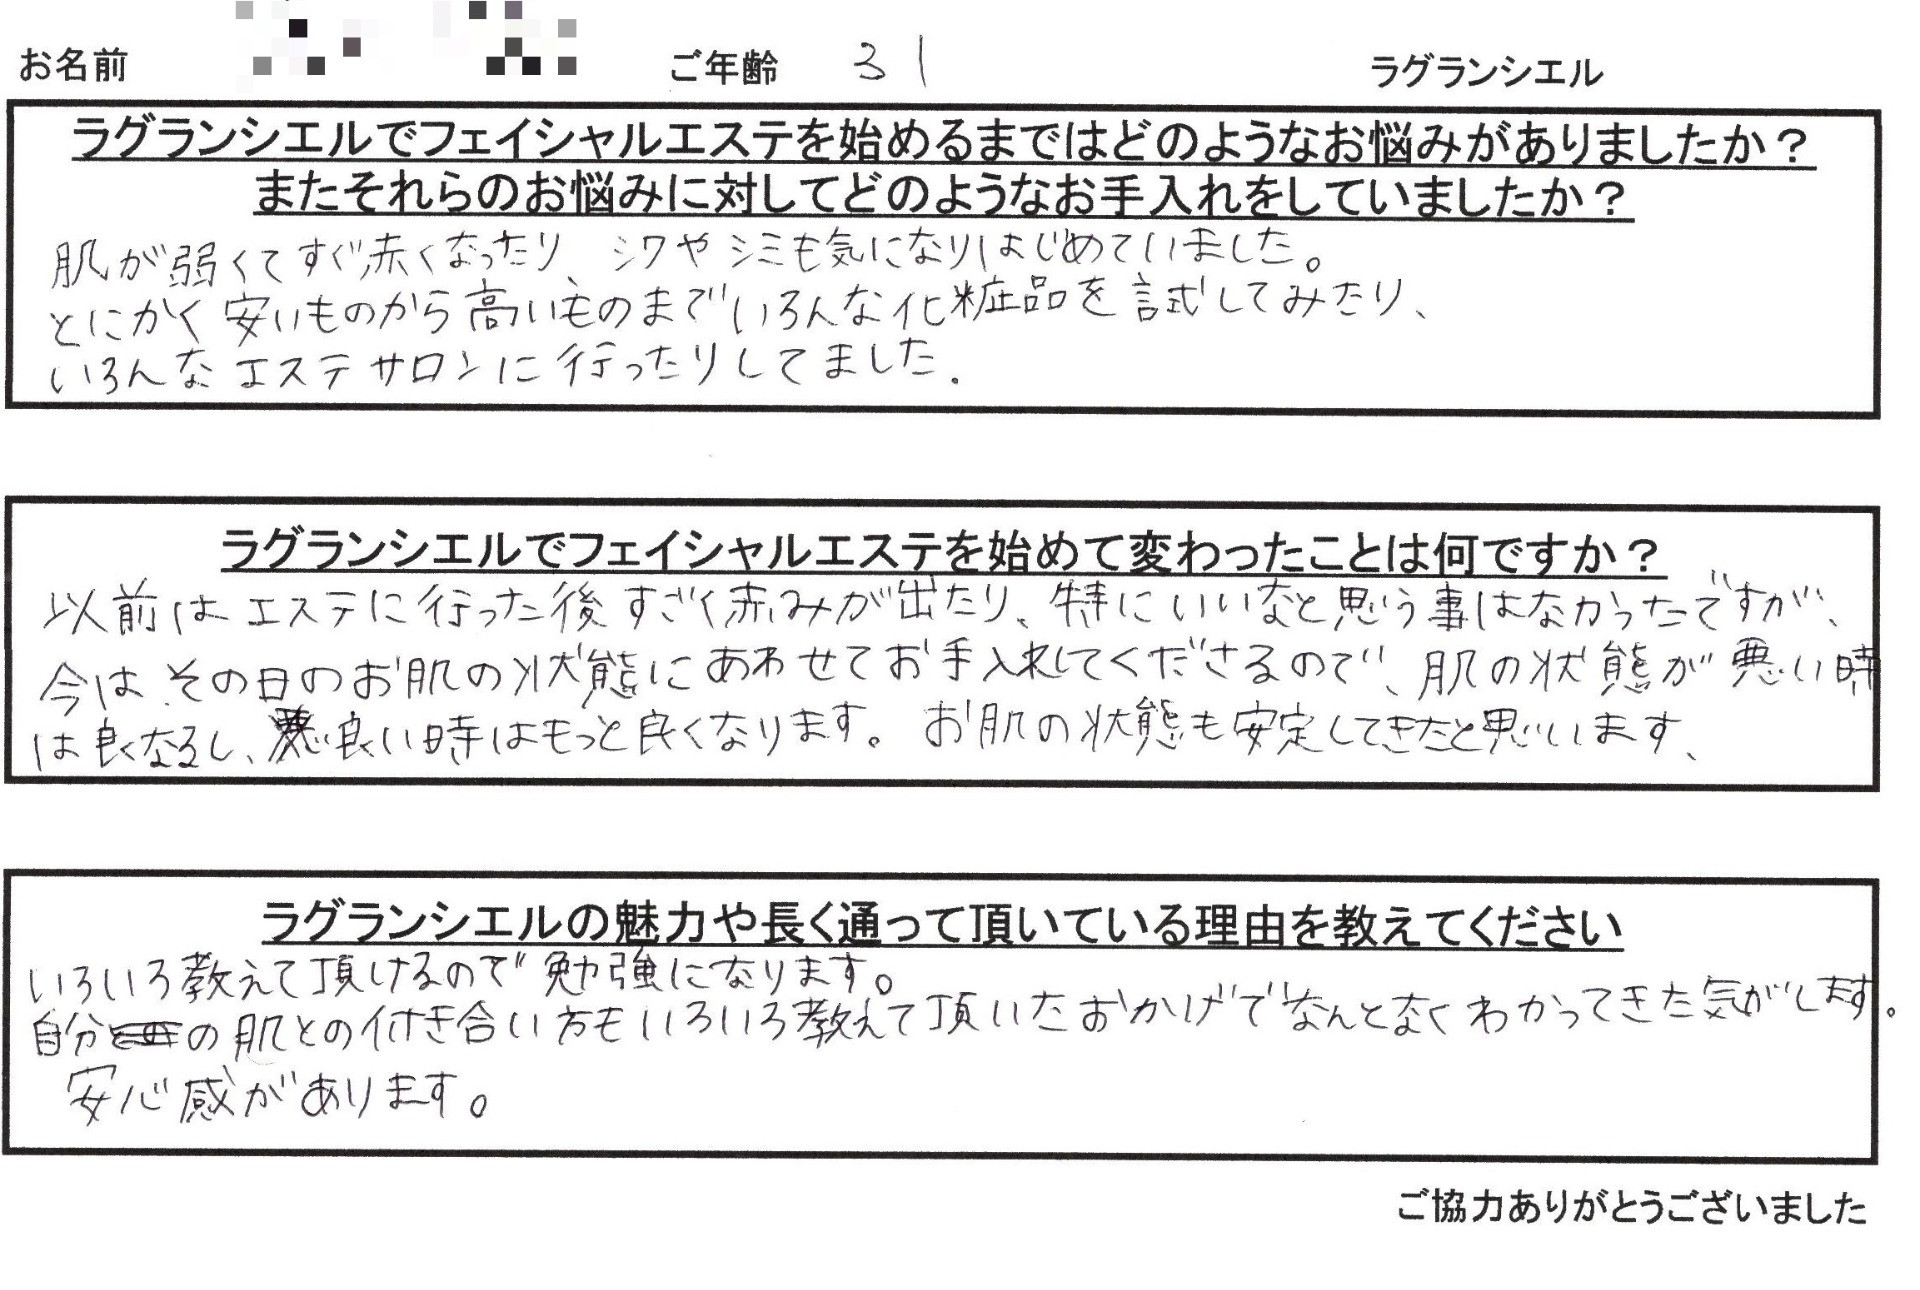 お名前 ご年齢 31 ラグランシエル
ラグランシエルでフェイシャルエステを始めるまではどのようなお悩みがありましたか？
またそれらのお悩みに対してどのようなお手入れをしていましたか？
肌が弱くてすぐ赤くなったり、シワやシミも気になりはじめていました。
とにかく安いものから高いものまでいろんな化粧品を試してみたり、
いろんなエステサロンに行ったりしてました.
ラグランシエルでフェイシャルエステを始めて変わったことは何ですか？
以前はエステに行った後すごく赤みが出たり、特にいいなと思う事はなかったですが、
今は、その日のお肌の状態にあわせてお手入れしてくださるので、肌の状態が悪い時
は良くなるし、良い時はもっと良くなります。お肌の状態も安定してきたと思います、
ラグランシエルの魅力や長く通って頂いている理由を教えてください
いろいろ教えて頂けるので勉強になります。
自分の肌との付き合い方もいろいろ教えて頂いたおかげでなんとなくわかってきた気がします。
安心感があります。
ご協力ありがとうございました